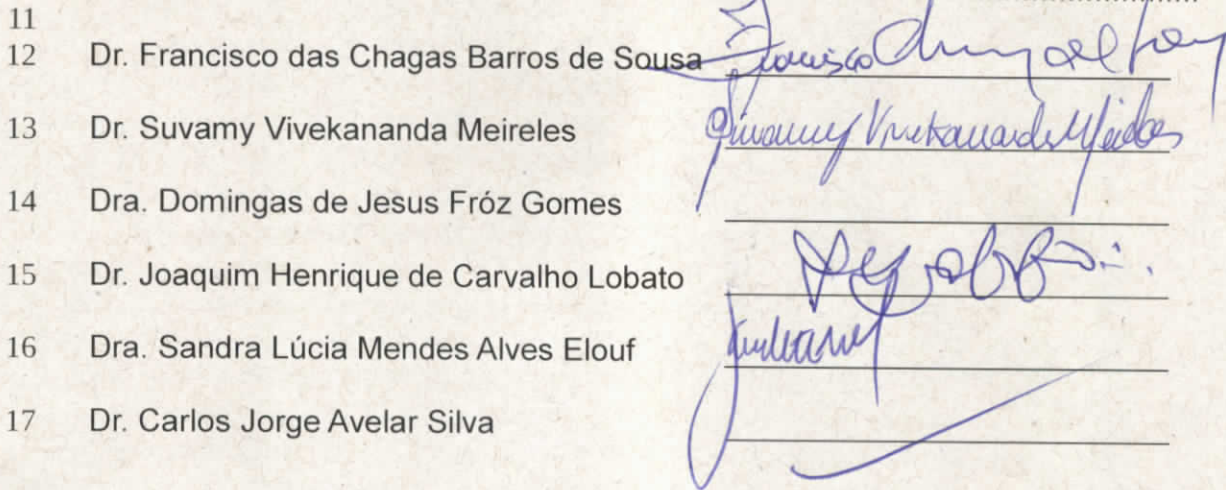 11
12 Dr. Francisco das Chagas Barros de Sousa Francisco
13 Dr. Suvamy Vivekananda Meireles Suvamy Vivekananda Meireles
14 Dra. Domingas de Jesus Fróz Gomes
15 Dr. Joaquim Henrique de Carvalho Lobato
16 Dra. Sandra Lúcia Mendes Alves Elouf
17 Dr. Carlos Jorge Avelar Silva